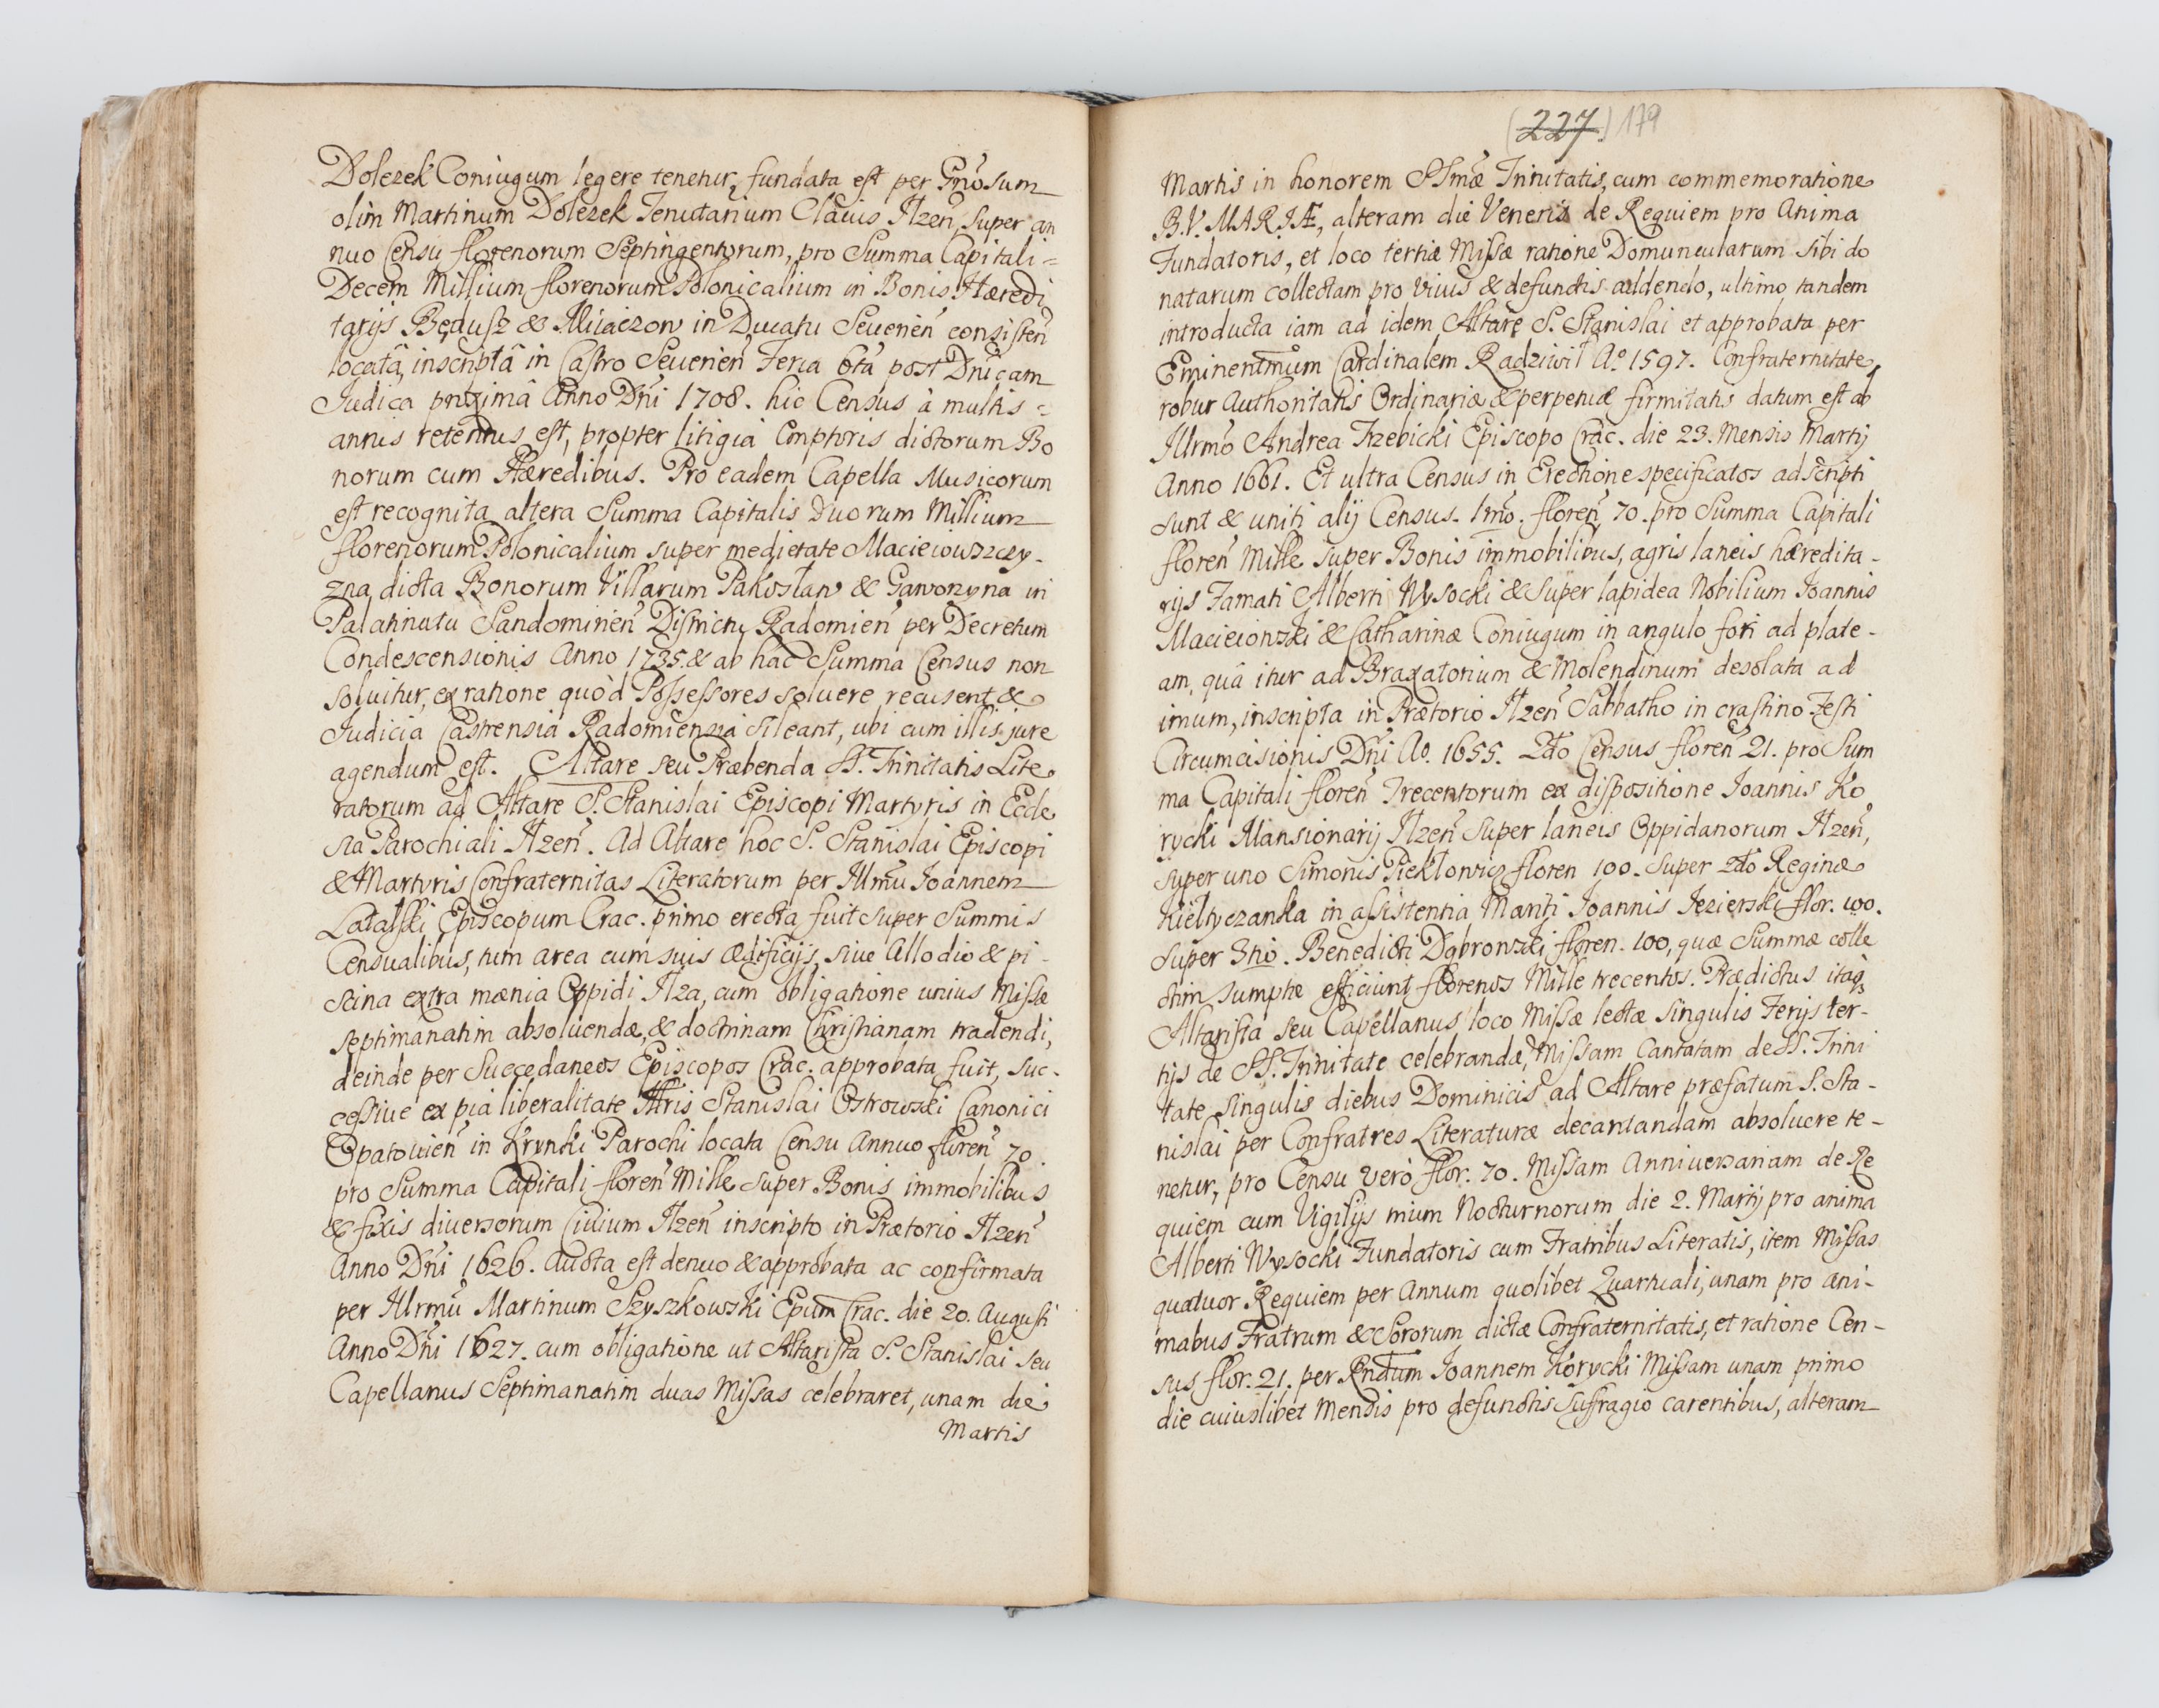 Dolezek Coniugum legere tenetur, fundata est per Gnõsum
olim Martinum Dolezek Tenutarium Clavis Ilzeñ, super an
nuo Censu florenorum Septingentorum, pro Summa Capitali =
Decem Millium florenorum Polonicalium in Bonis Hæredi
tarijs Będusz & Mijaczow in Ducatu Seuerieñ consisteñ
locatâ, inscriptâ in Castro Seuerieñ Feria 6tâ post Dñicam
Judica proximâ Anno Dñi 1708. hic Census à multis =
annis retentus est, propter litigia Emptoris dictorum Bo
norum cum Hæredibus. Pro eadem Capella Musicorum
est recognita altera Summa Capitalis Duorum Millium
florenorum Polonicalium super medietate Macieiowszczy-
zna dicta Bonorum Villarum Pakosław & Gaworzyna in
Palatinatu Sandomirieñ Districtu Radomieñ per Decretum
Condescensionis Anno 1735. & ab hac Summa Census non
soluitur, ex ratione quòd Possessores soluere recusent &
Judicia Castrensia Radomiensia sileant, ubi cum illis jure
agendum est. Altare seu Præbenda SS. Trinitatis Lite
ratorum ad Altare S. Stanislai Episcopi Martyris in Eccle
sia Parochiali Ilzeñ. Ad Altare hoc S. Stanislai Episcopi
& Martyris Confraternitas Literatorum per Illmũ Joannem
Latalski Episcopum Crac. primo erecta fuit super Summis
Censualibus, tum area cum suis ædificijs, siue Allodio & pi-
scina extra mænia Oppidi Ilza, cum obligatione unius Missæ
septimanatim absoluendæ, & doctrinam Christianam tradendi,
deinde per Succedaneos Episcopos Crac. approbata fuit, suc-
cessiue ex pia liberalitate Illris Stanislai Ostrowski Canonici
Opatouieñ in Krynki Parochi locata Censu Annuo floreñ 70
pro Summa Capitali floreñ Mille super Bonis immobilibus
& fixis diuersorum Ciuium Ilzeñ inscripto in Prætorio Ilzeñ
Anno Dñi 1626. Aucta est denuo & approbata ac confirmata
per Illrmũ Martinum Szyszkowski Epum Crac. die 20. Augusti
Anno Dñi 1627. cum obligatione ut Altarista S. Stanislai seu
Capellanus Septimanatim duas Missas celebraret, unam die
Martis
(227) 179
Martis in honorem SSmæ Trinitatis, cum commemoratione
B.V. MARIÆ, alteram die Veneris de Requiem pro Anima
Fundatoris, et loco tertiæ Missæ ratione Domuncularum sibi do
natarum collectam pro viuis & defunctis addendo, ultimo tandem
introducta iam ad idem Altare S. Stanislai et approbata per
Eminentmum Cardinalem Radziwił Aº 1597. Confraternitate,
robur Authoritatis Ordinariæ & perpetuæ firmitatis datum est ab
Illrmo Andrea Trzebicki Episcopo Crac. die 23. Mensis Martij
Anno 1661. Et ultra Census in Erectione specificatos adscripti
sunt & uniti alij Census. 1mo. floreñ 70. pro Summa Capitali
floreñ Mille super Bonis immobilibus, agris laneis hæredita-
rijs Famati Alberti Wysocki & super lapidea Nobilium Joannis
Macieiowski & Catharinæ Coniugum in angulo fori ad plate-
am, quâ itur ad Braxatorium & Molendinum desolata ad
imum, inscripta in Prætorio Ilzeñ Sabbatho in crastino Festi
Circumcisionis Dñi Ao. 1655. 2do Census floreñ 21. pro Sum
ma Capitali floreñ Trecentorum ex dispositione Joannis Ko
rycki Mansionarij Ilzeñ super laneis Oppidanorum Ilzeñ,
super uno Simonis Piekłowicz floren 100. super 2do Reginæ
Kiełtyczanka in assistentia Mariti Joannis Jezierski flor. 100.
super 3tio. Benedicti Dąbrowski floren. 100, quæ Summæ colle
ctim sumptæ efficiunt florenos Mille trecentos. Prædictus itaq
Altarista seu Capellanus loco Missæ lectæ singulis Ferijs ter-
tijs de SS. Trinitate celebrandæ, Missam Cantatam de SS. Trini
tate singulis diebus Dominicis ad Altare præfatum S. Sta-
nislai per Confratres Literaturæ decantandam absoluere te-
netur, pro Censu verò flor. 70. Missam Anniuersariam de Re
quiem cum Vigilijs trium Nocturnorum die 2. Martij pro anima
Alberti Wysocki Fundatoris cum Fratribus Literatis, item Missas
quatuor Requiem per Annum quolibet Quartuali, unam pro ani-
mabus Fratrum & Sororum dictæ Confraternitatis, et ratione Cen-
sus flor. 21. per Rndum Joannem Korycki Missam unam primo
die cuiuslibet Mensis pro defunctis suffragio carentibus, alteram